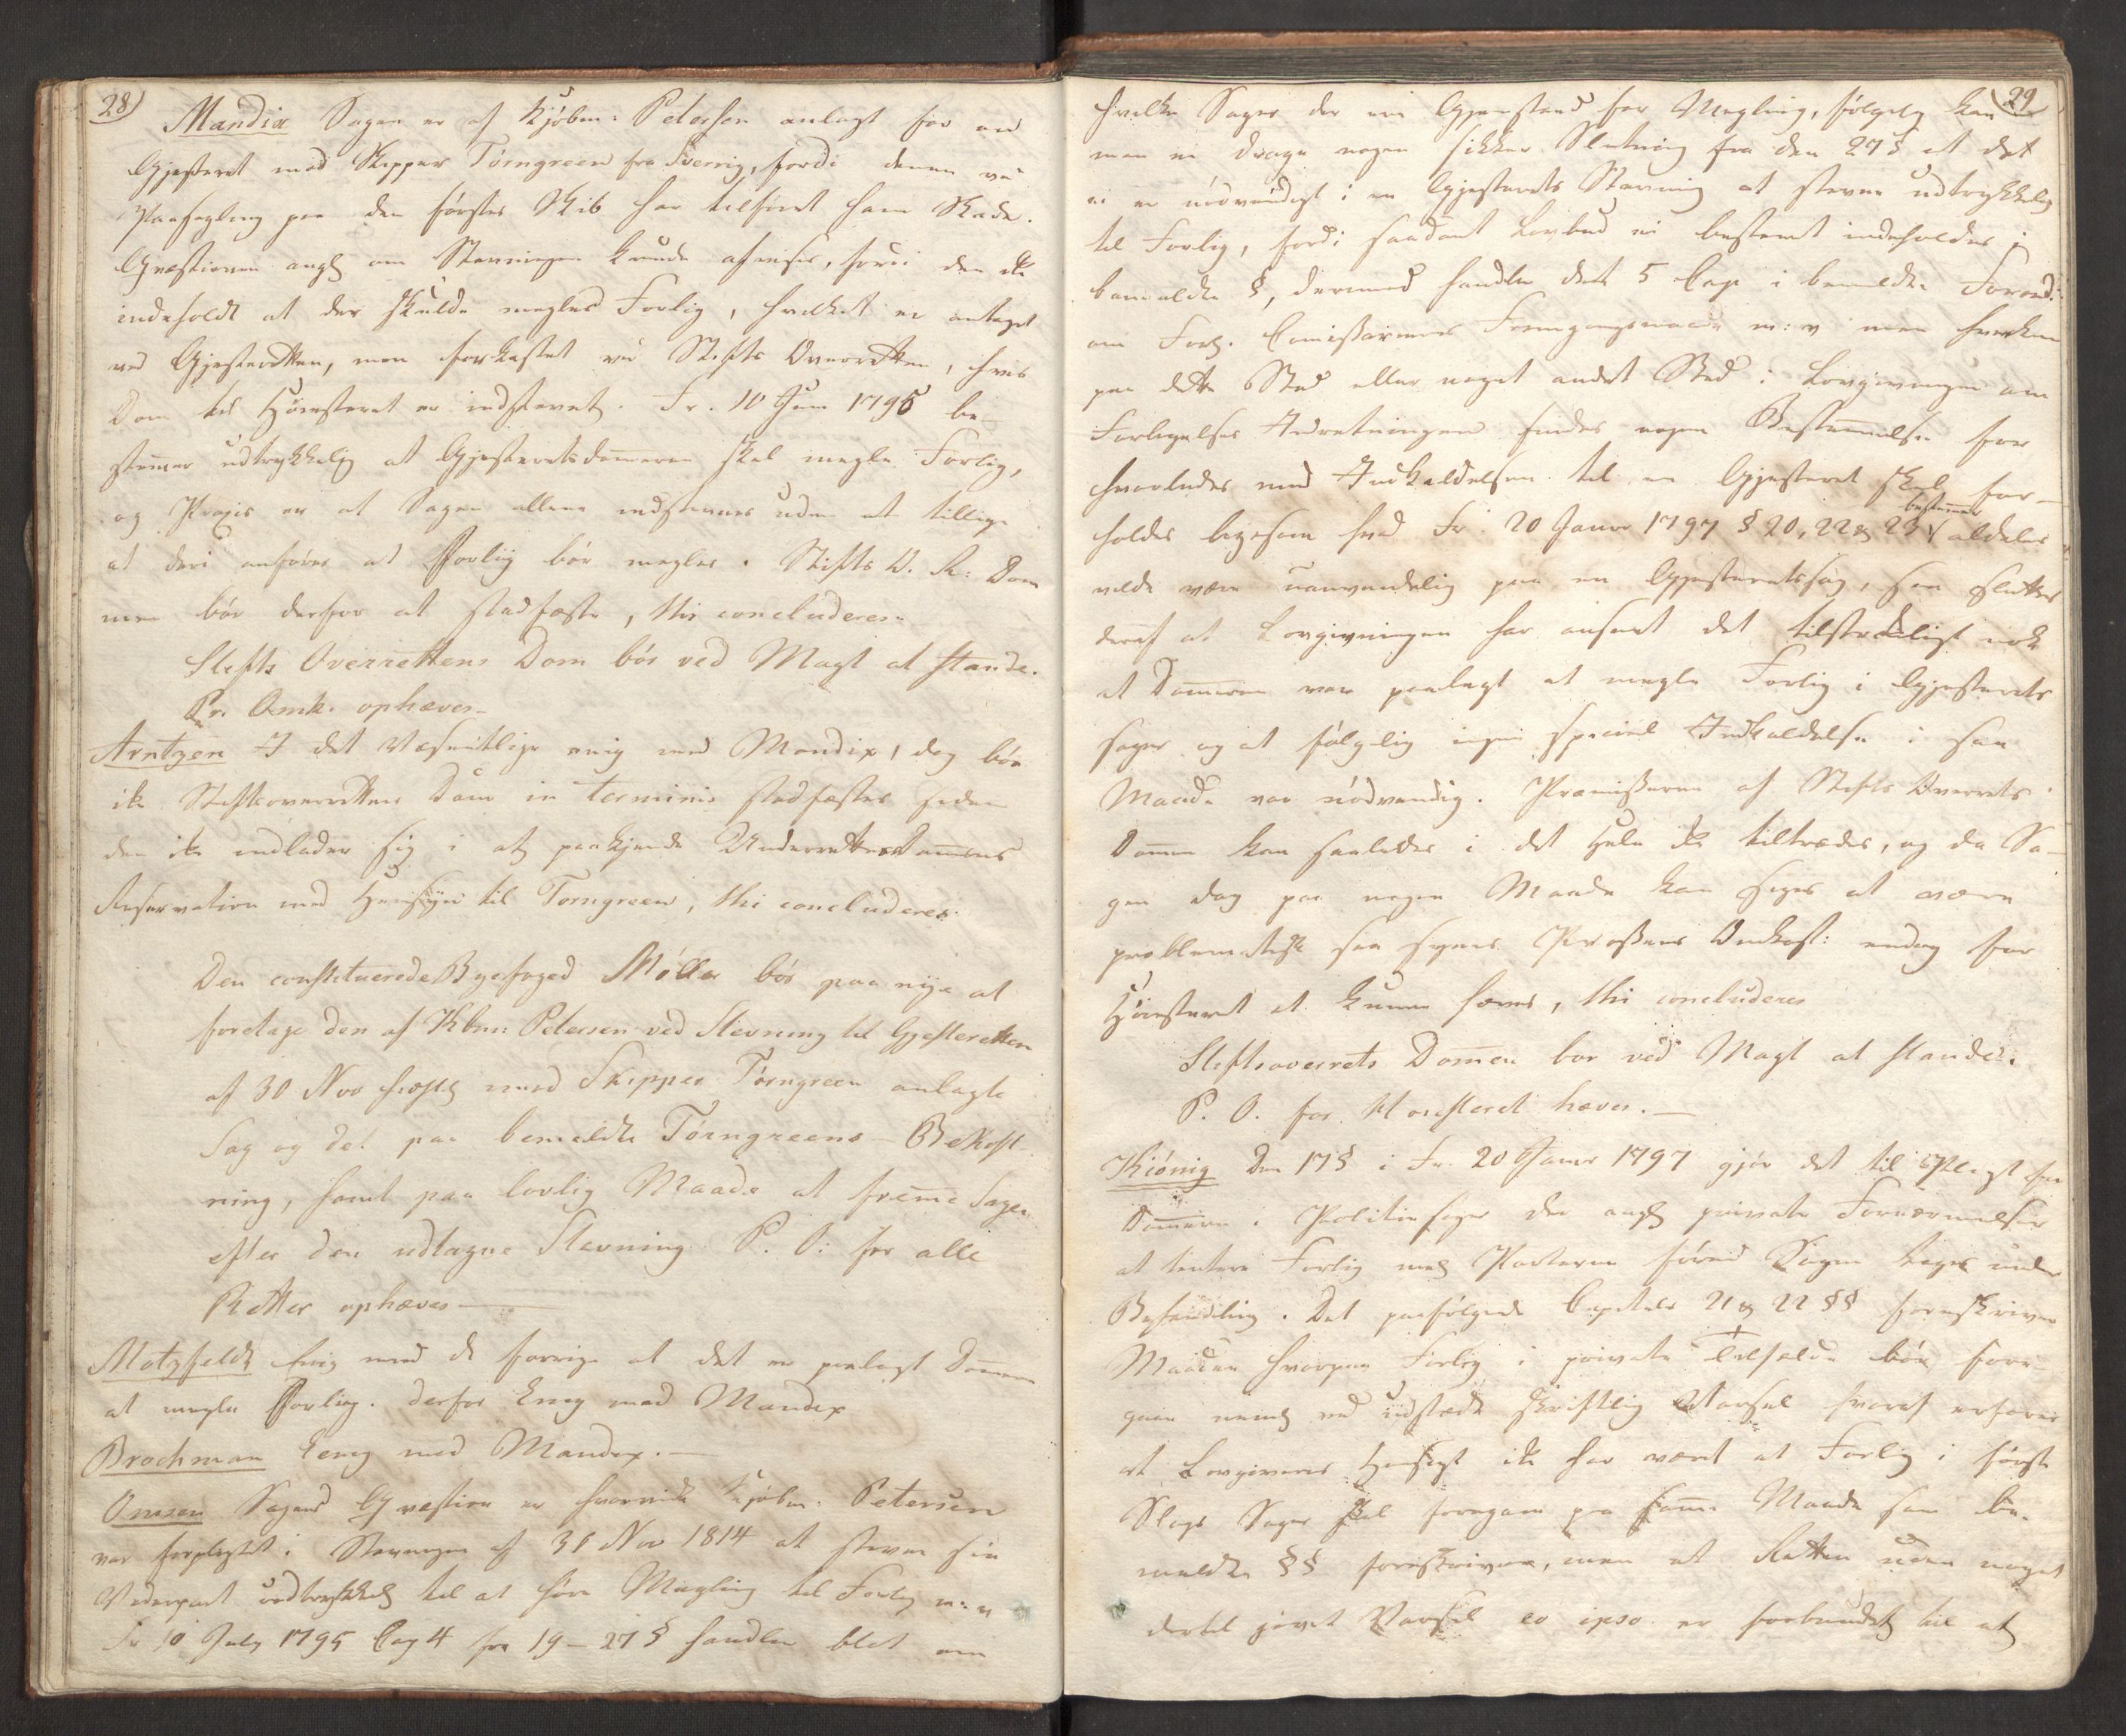 28)
Mandix Sagen er af Kjöbm: Petersen anlagt for en
Gjesteret mod Skipper Törngreen fra Sverrig, fordi denne ved
Paasegling paa den förstes Skib har tilföiet ham Skade.
Qvæstionen angl om Stevningen kunde afvises, fordi den ikke
indeholdt at der skulde megles Forlig, hvilket er antaget
ved Gjesteretten, men forkastet ved Stifts Overretten, hvis
Dom til Höiesteret er indstevnet. Fr. 10 Jun 1795 be-
stemer udtrykkelig at Gjesteretsdomeren skal megle Forlig,
og Praxis er at Sagen allene indstevnes uden at tillige
at deri anföres at Forlig bör megles. Stifts O. R: Dom
men bör derfor at stadfæste, thi concluderes.
Stifts Overrettens Dom bör ved Magt at stande.
Pr. Omk. ophæves
Arntzen I det Væsentlige enig med Mandix, dog bör
ikke Stiftsoverrettens Dom in terminis stadfæstes siden
den ikke indlader sig i at paakjende Underrettes Domens
Reservation med Hensyn til Torngreen, thi concluderes.
Den constituerede Byefoged Möller bör paa nye at
foretage den af Kbm: Petersen ved Stevning til Gjesteretten
af 30 Nov mod Skipper Törngreen anlagte
Sag og det paa bemeldte Törngreens Bekost
ning, samt paa lovlig Maade at freme Sagen
efter den udtagne Stevning. P. O: for alle
Retter ophæves
Motzfeldt Enig med de forrige at det er paalagt Domeren
at megle Forlig. derfor Enig med Mandix
Brochman Eenig med Mandix.
Omsen Sagens Qvæstion er hvorvidt Kjöbm: Petersen
var forpligtet i Stevningen af 30 Nov 1814 at stevne sin
Vederpart udtrykkel til at höre Megling til Forlig m: v
Fr 10 July 1795 Cap 4 fra 19 - 27 § handler blot om
29
hvilke Sager der er Gjenstand for Megling, fölgelig kan
man ei drage nogen sikker Slutning fra den 27 § at det
ei er nödvendigt i en Gjesterets Stevning at stevne udtrykkelig
til Forlig, fordi saadant Lovbud ei bestemt indeholdes i
bemeldte §, derimod handler dets 5 Cap i bemeldte Forord:
om Forl. Comissairernes Fremgangsmaade m: v men hverken
paa dette Sted eller noget andet Sted i Lovgivningen om
Forligelses Indretningen findes nogen Bestemelse for
hvorledes med Indkaldelsen til en Gjesteret skal for-
holdes ligesom hvad Fr. 20 Janr 1797 § 20, 22 & 23 bestemer aldeles
vilde være uanvendelig paa en Gjesteretssag, saa sluttes
deraf at Lovgivningen har anseet det tilstrækkeligt nok
at Domeren var paalagt at megle Forlig i Gjesterets
sager og at fölgelig ingen speciel Indkaldelse i saa
Maade var nödvendig. Præmisserne af Stifts Overrets
Domen kan saaledes i det Hele ikke tiltrædes, og da Sa-
gen dog paa nogen Maade kan siges at være
problematisk saa synes Processens Omkost: endog for
Höiesteret at kunne hæves, thi concluderes
Stiftsoverrets Domen bor ved Magt at stande.
P. O. for Höiesteret hæves.
Kiönig Den 17 § i Fr. 20 Janr 1797 gjör det til Pligt for
Domeren i Politie sager der angl private Fornærmelser
at tentere Forlig mell Parterne förend Sagen tages under
Behandling. Det paafölgende Capitels 21 & 22 §§ foreskriver
Maaden hvorpaa Forlig i private Tilfælde bör fore-
gaae neml ved udstædt skriftlig Varsel hvoraf erfares
at Lovgiverens Hensigt ikke har været at Forlig i förste
Slags Sager skal foregaae paa same Maade som be-
meldte §§ foreskriver, men at Retten uden noget
dertil givet Varsel eo ipso er forbundet til at